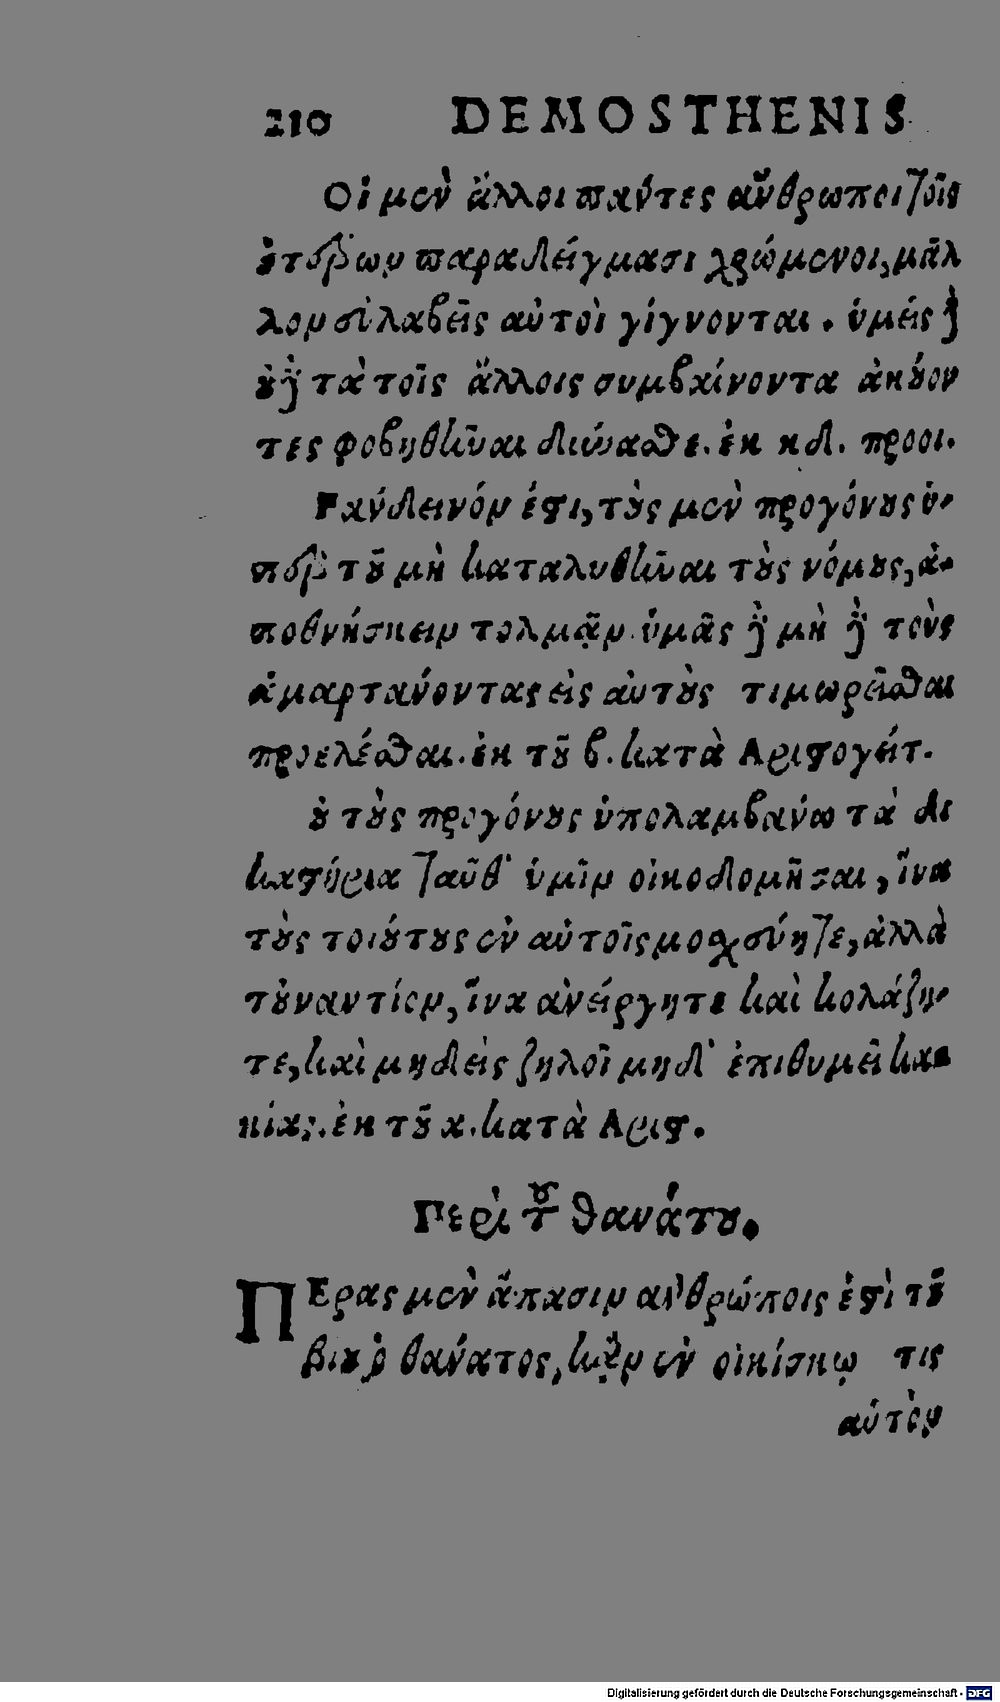 210 DEMOSTHENIS
Οἱ μὲν ἄλλοι πάντες ἄνθρωποι τοῖς
ἑτέρων παραδείγμασι χρώμενοι, μᾶλ
λον εὐλαβεῖς αὐτοὶ γίγνονται. ὑμεῖς δὲ
οὐδὲ τὰ τοῖς ἄλλοις συμβαίνοντα ἀκούον
τες φοβηθῆναι δύναισθε. ἐκ κδ. προοι.
Πάνδεινόν ἐστι, τοὺς μὲν προγόνους ὑ-
πὲρ τοῦ μὴ καταλυθῆναι τοὺς νόμους, ἀ-
ποθνήσκειν τολμᾶν. ὑμᾶς δὲ μὴ δὲ τοὺς
ἁμαρτάνοντας εἰς αὐτοὺς τιμωρεῖσθαι
προελέσθαι. ἐκ τοῦ β. κατὰ Ἀριστογείτ.
οὐ τοὺς προγόνους ὑπολαμβάνω τὰ δι
καστήρια ταῦθ' ὑμῖν οἰκοδομῆσαι, ἵνα
τοὺς τοιούτους ἐν αὐτοῖς μοσχεύητε, ἀλλὰ
τοὐναντίον, ἵνα ἀνείργητε καὶ κολάζη-
τε, καὶ μηδεὶς ζηλοῖ μηδ' ἐπιθυμεῖ κα-
κίας. ἐκ τοῦ α. κατὰ Ἀριστ.
Περὶ τοῦ θανάτου.
ΠΕρας μὲν ἅπασιν ἀνθρώποις ἐστὶ τοῦ
βίου ὁ θάνατος, κἂν ἐν οἰκίσκῳ τις
αὐτὸν
Digitalisierung gefördert durch die Deutsche Forschungsgemeinschaft - DFG